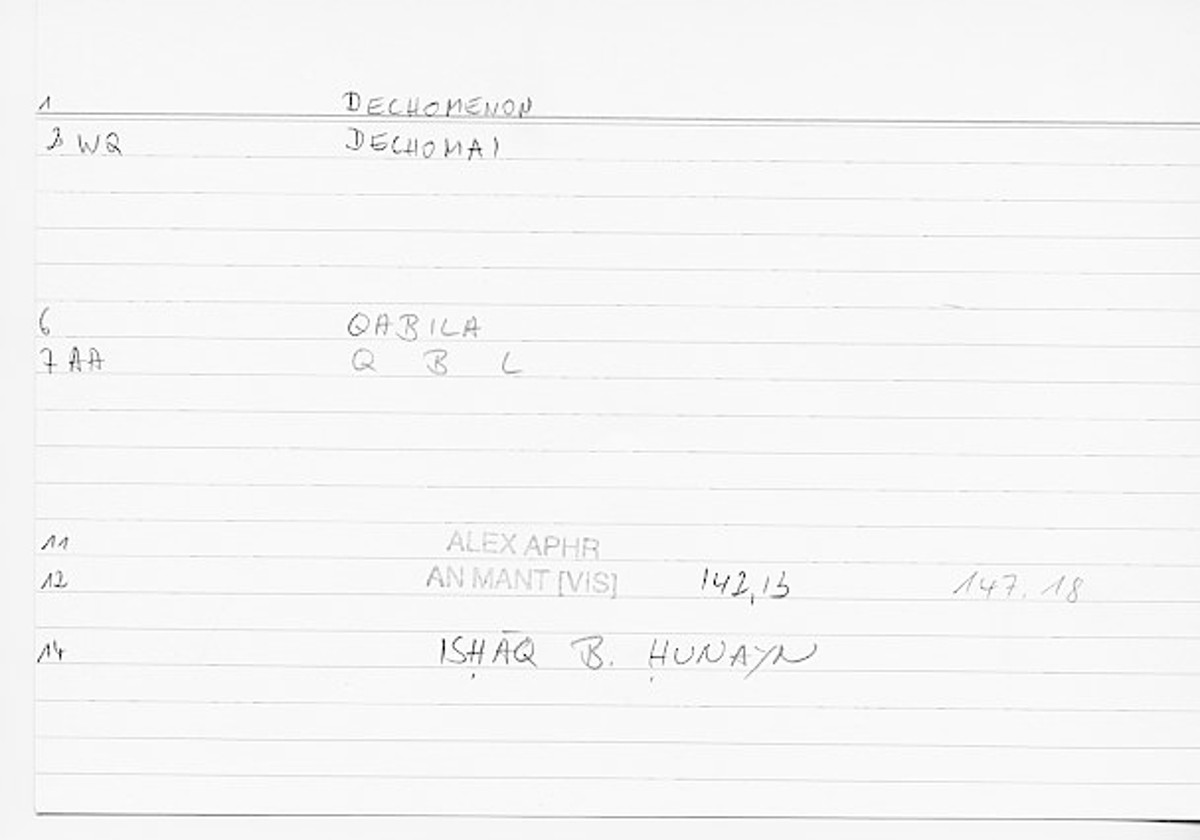 1 DECHOMENON
2 WQ DECHOMAI
6 QABILA
7 AA Q B L
11 ALEX APHR
12 AN MANT [VIS] 142,13 147.18
14 ISḤĀQ B. ḤUNAYN